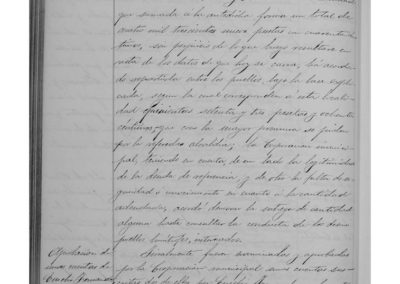 que sumada á la antedicha forma un total de
cuatro mil trescientas nueve pesetas cuarenta cén-
timos, sin perjuicio de lo que luego resultare en
vista de los datos de que hoy se carece, há acorda-
do repartirlo entre los pueblos, bajo la base espli-
cada, segun la cual corresponden á esta locali-
dad quinientas setenta y tres pesetas y ochenta
céntimos, que con la mayor premura se piden
por la referida alcaldía; la Corporacion munici-
pal, teniendo en cuenta de un lado la legitimidad
de la deuda de referencia, y de otro la falta de se-
guridad ó conocimiento en cuanto á la cantidad
adeudada, acordó demorar la entrega de cantidad
alguna hasta consultar la conducta de los demas
pueblos limítrofes, interesados.
Aprobacion de
unas cuentas de
Finalmente fueron examinadas y aprobadas
por la Corporacion municipal unas cuentas